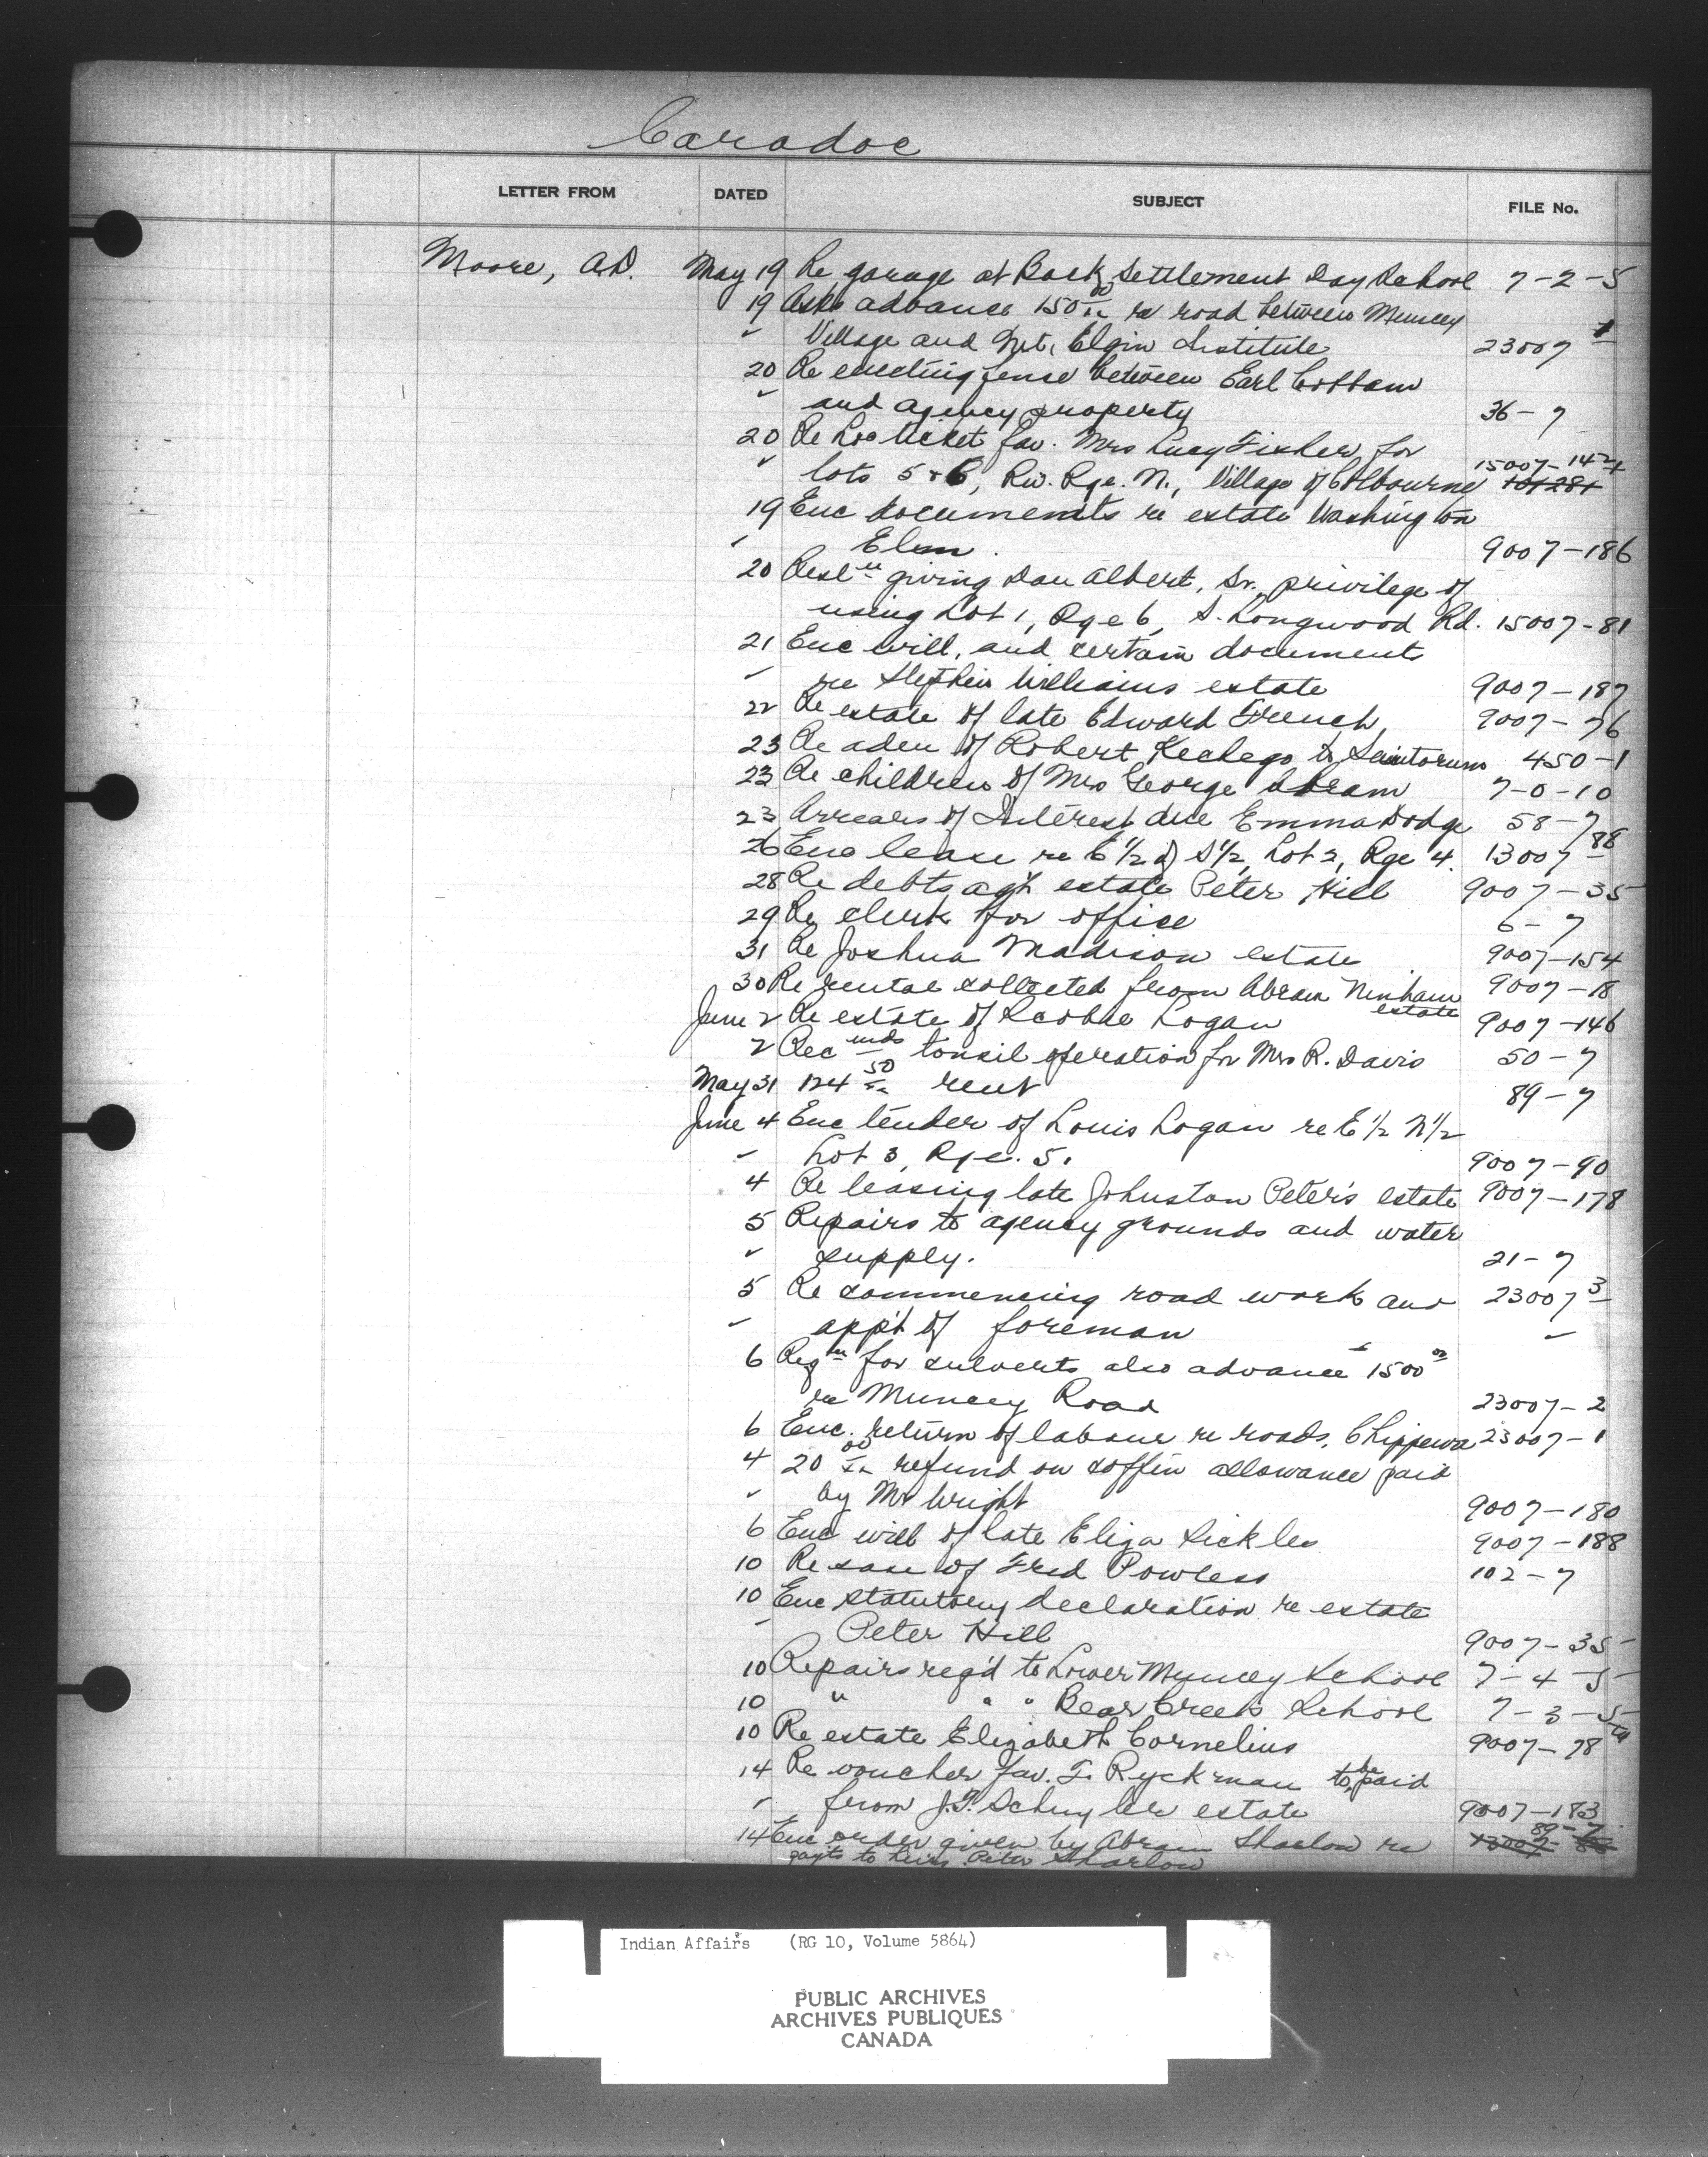 Caradoc
LETTER FROM DATED SUBJECT FILE No.
Moore, A.D. May 19 Re garage at Back Settlement Day School 7-2-5
19 Asks advance 150 00/xx re road between Muncey
" Village and Mt. Elgin Institute 23007 1
20 Re erecting fence between Earl Cottam
" and agency property 36-7
20 Re Loc ticket fav. Mrs Lucy Fisher for
" lots 5 & 6, Riv. Rge. N., Village of Colbourne 15007-142
19 Enc documents re estate Washington
" Elm. 9007-186
20 Resln giving Dan Albert, Sr., privilege of
using Lot 1, Rge 6, S. Longwood Rd. 15007-81
21 Enc will, and certain documents
" re Stephen Williams estate 9007-187
22 Re estate of late Edward French 9007-76
23 Re adm of Robert Kechego to Sanitorum 450-1
23 Re children of Mrs George Abram 7-0-10
23 Arrears of Interest due Emma Dodge 58-7
26 Enc lease re E 1/2 of S 1/2, Lot 2, Rge 4. 13007 88
28 Re debts agst estate Peter Hill 9007-35
29 Re clerk for office 6-7
31 Re Joshua Madison estate 9007-154
30 Re rental collected from Abram Ninham estate 9007-18
June 2 Re estate of Scobie Logan 9007-146
2 Recmds tonsil operation for Mrs R. Davis 50-7
May 31 124 50/xx rent 89-7
June 4 Enc tender of Louis Logan re E 1/2 N 1/2
" Lot 3, Rge. 5. 9007-90
4 Re leasing late Johnston Peter's estate 9007-178
5 Repairs to agency grounds and water
" supply. 21-7
5 Re commencing road work and 23007 3
" app't of foreman "
6 Reqn for culverts also advance 1500 00
re Muncey Road 23007-2
6 Enc. return of labour re roads, Chippewa 23007-1
4 20 00/xx refund on coffin allowance paid
" by Mr Wright 9007-180
6 Enc will of late Eliza Sickles 9007-188
10 Re case of Fred Powless 102-7
10 Enc statutory declaration re estate
" Peter Hill 9007-35
10 Repairs req'd to Lower Muncey School 7-4-5
10 " " " Bear Creek School 7-3-5
10 Re estate Elizabeth Cornelius 9007-78
14 Re voucher fav. F. Ryckman to be paid
" from J.T. Schuyler estate 9007-183
14 Enc order given by Abram Sharlow re 89-7
payts to heirs Peter Sharlow
Indian Affairs (RG 10, Volume 5864)
PUBLIC ARCHIVES
ARCHIVES PUBLIQUES
CANADA